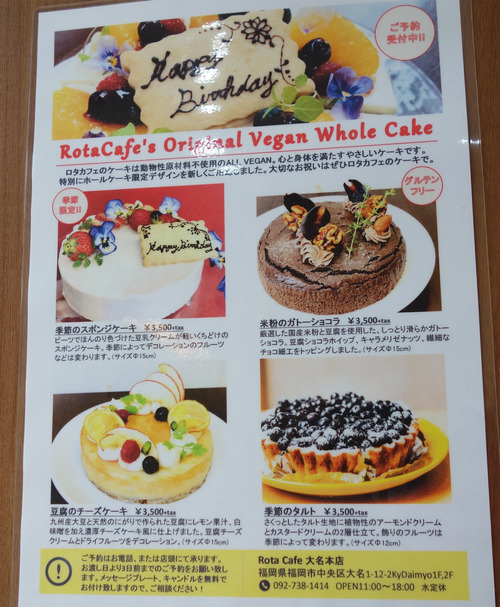 ご予約
受付中!!
Happy
Birthday
RotaCafe's Original Vegan Whole Cake
ロタカフェのケーキは動物性原材料不使用のALL VEGAN。心と身体を満たすやさしいケーキです。
特別にホールケーキ限定デザインを新しくご用意しました。大切なお祝いはぜひロタカフェのケーキで。
季節
限定!!
Happy Birthday
グルテン
フリー
季節のスポンジケーキ ¥3,500+tax
ビーツでほんのり色づけた豆乳クリームが軽いくちどけの
スポンジケーキ。季節によってデコレーションのフルーツ
などは変わります。(サイズΦ15cm)
米粉のガトーショコラ ¥3,500+tax
厳選した国産米粉と豆腐を使用した、しっとり滑らかガトー
ショコラ。豆腐ショコラホイップ、キャラメリゼナッツ、繊細な
チョコ細工をトッピングしました。(サイズΦ15cm)
豆腐のチーズケーキ ¥3,500+tax
九州産大豆と天然のにがりで作られた豆腐にレモン果汁、白
味噌を加え濃厚チーズケーキ風に仕上げました。豆腐チーズ
クリームとドライフルーツをデコレーション。(サイズΦ15cm)
季節のタルト ¥3,500+tax
さくっとしたタルト生地に植物性のアーモンドクリーム
とカスタードクリームの2層仕立て。飾りのフルーツは
季節によって変わります。(サイズΦ12cm)
ご予約はお電話、または店頭にて承ります。
お渡し日より3日前までのご予約をお願い致し
ます。メッセージプレート、キャンドルを無料で
お付け致しますので、ご相談ください!
Rota Cafe 大名本店
福岡県福岡市中央区大名1-12-2KyDaimyo1F,2F
092-738-1414 OPEN11:00〜18:00 水定休